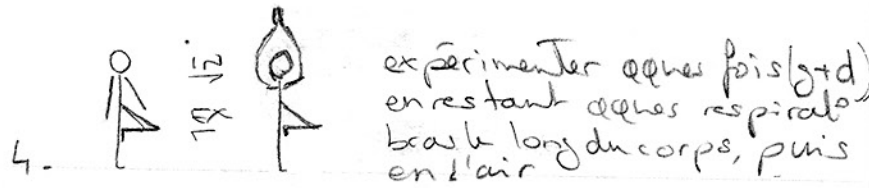 expérimenter qques fois (g+d)
en restant qques respirat°
bras le long du corps, puis
en l'air
4.